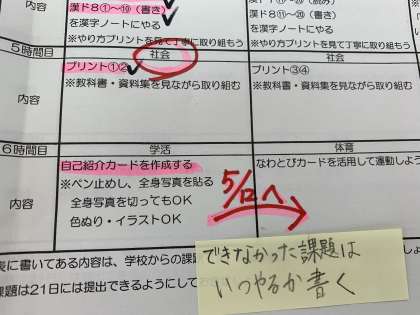 漢ド8①～⑩(書き)
を漢字ノートにやる
※やり方プリントを見て丁寧に取り組もう
漢ド8⑪～⑳(書き)
を漢字ノートにやる
※やり方プリントを見て丁寧に取り組もう
5時間目
社会
社会
内容
プリント①②
※教科書・資料集を見ながら取り組む
プリント③④
※教科書・資料集を見ながら取り組む
6時間目
学活
体育
内容
自己紹介カードを作成する
※ペン止めし、全身写真を貼る
全身写真を切ってもOK
色ぬり・イラストOK
なわとびカードを活用して運動しよう
5/12へ
できなかった課題は
いつやるか書く
表に書いてある内容は、学校からの課
課題は21日には提出できるようにしてお